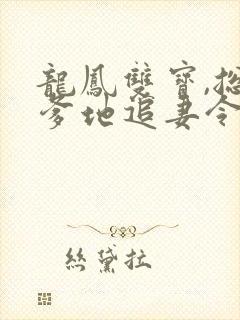 龍鳳雙寶,總
爹地追妻令
絲黛拉